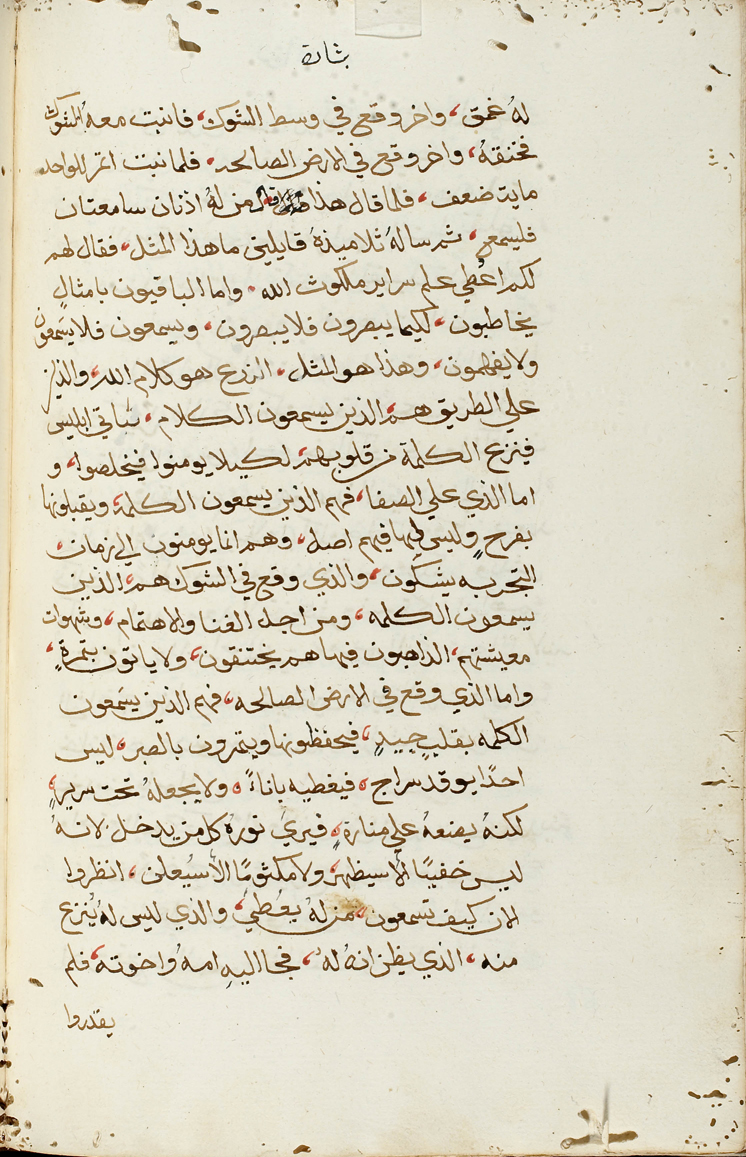 بشارة
لهُ عمق، واخر وقع في وسط الشوك، فانبت معه الشوك
فخنقهُ، واخر وقع في الارض الصالحه. فلما نبت اثمر للواحد
مايت ضعف، فلما قال هذا قال من لهُ اذنان سامعتان
فليسمع، ثم سالهُ تلاميذهُ قايلين ما هذا المثل، فقال لهم
لكم اعُطي علم سراير ملكوت الله. واما الباقيون بامثالٍ
يخاطبون، لكيما يبصرون فلا يبصرون، ويسمعون فلا يسَمعون
ولا يفهمون، وهذا هو المثل. الزرع هو كلام الله، والذين
علي الطريق هم الذين يسمعون الكلام، فياتي ابليس
فينزع الكلمة من قلوبهم لكيلا يومنوا فيخلصوا، و
اما الذي علي الصفا، فهم الذين يسمعون الكلمة، ويقبلونها
بفرحٍ وليس لها فيهم اصل، وهم انما يومنون الي زمان،
التجربه يشكون، والذي وقع في الشوك هم الذين
يسمعون الكلمه، ومن اجل الغنا والاهتمام، وشهوات
معيشتهم، الذاهبون فيها هم يختنقون، ولا ياتون بثمرةٍ،
واما الذي وقع في الارض الصالحه، فهم الذين يسَمعون
الكلمه بقلبٍ جيدٍ، فيحفظونها ويثمرون بالصبر، ليس
احدًا يوقد سراج، فيغطيه باناءً، ولا يجعلهُ تحت سريرٍ،
لكنهُ يضعهُ علي منارةٍ، فيري نورهُ كل من يدخل. لانهُ
ليس خفيًا الا سيظهر، ولا مكتومًا الا سيُعلن، انظروا
الان كيف تسمعون، من لهُ يعُطي، والذي ليس لهُ يُنزع
منه، الذي يظن انهُ له، فجا اليهِ امهُ واخوته، فلم
يقدروا